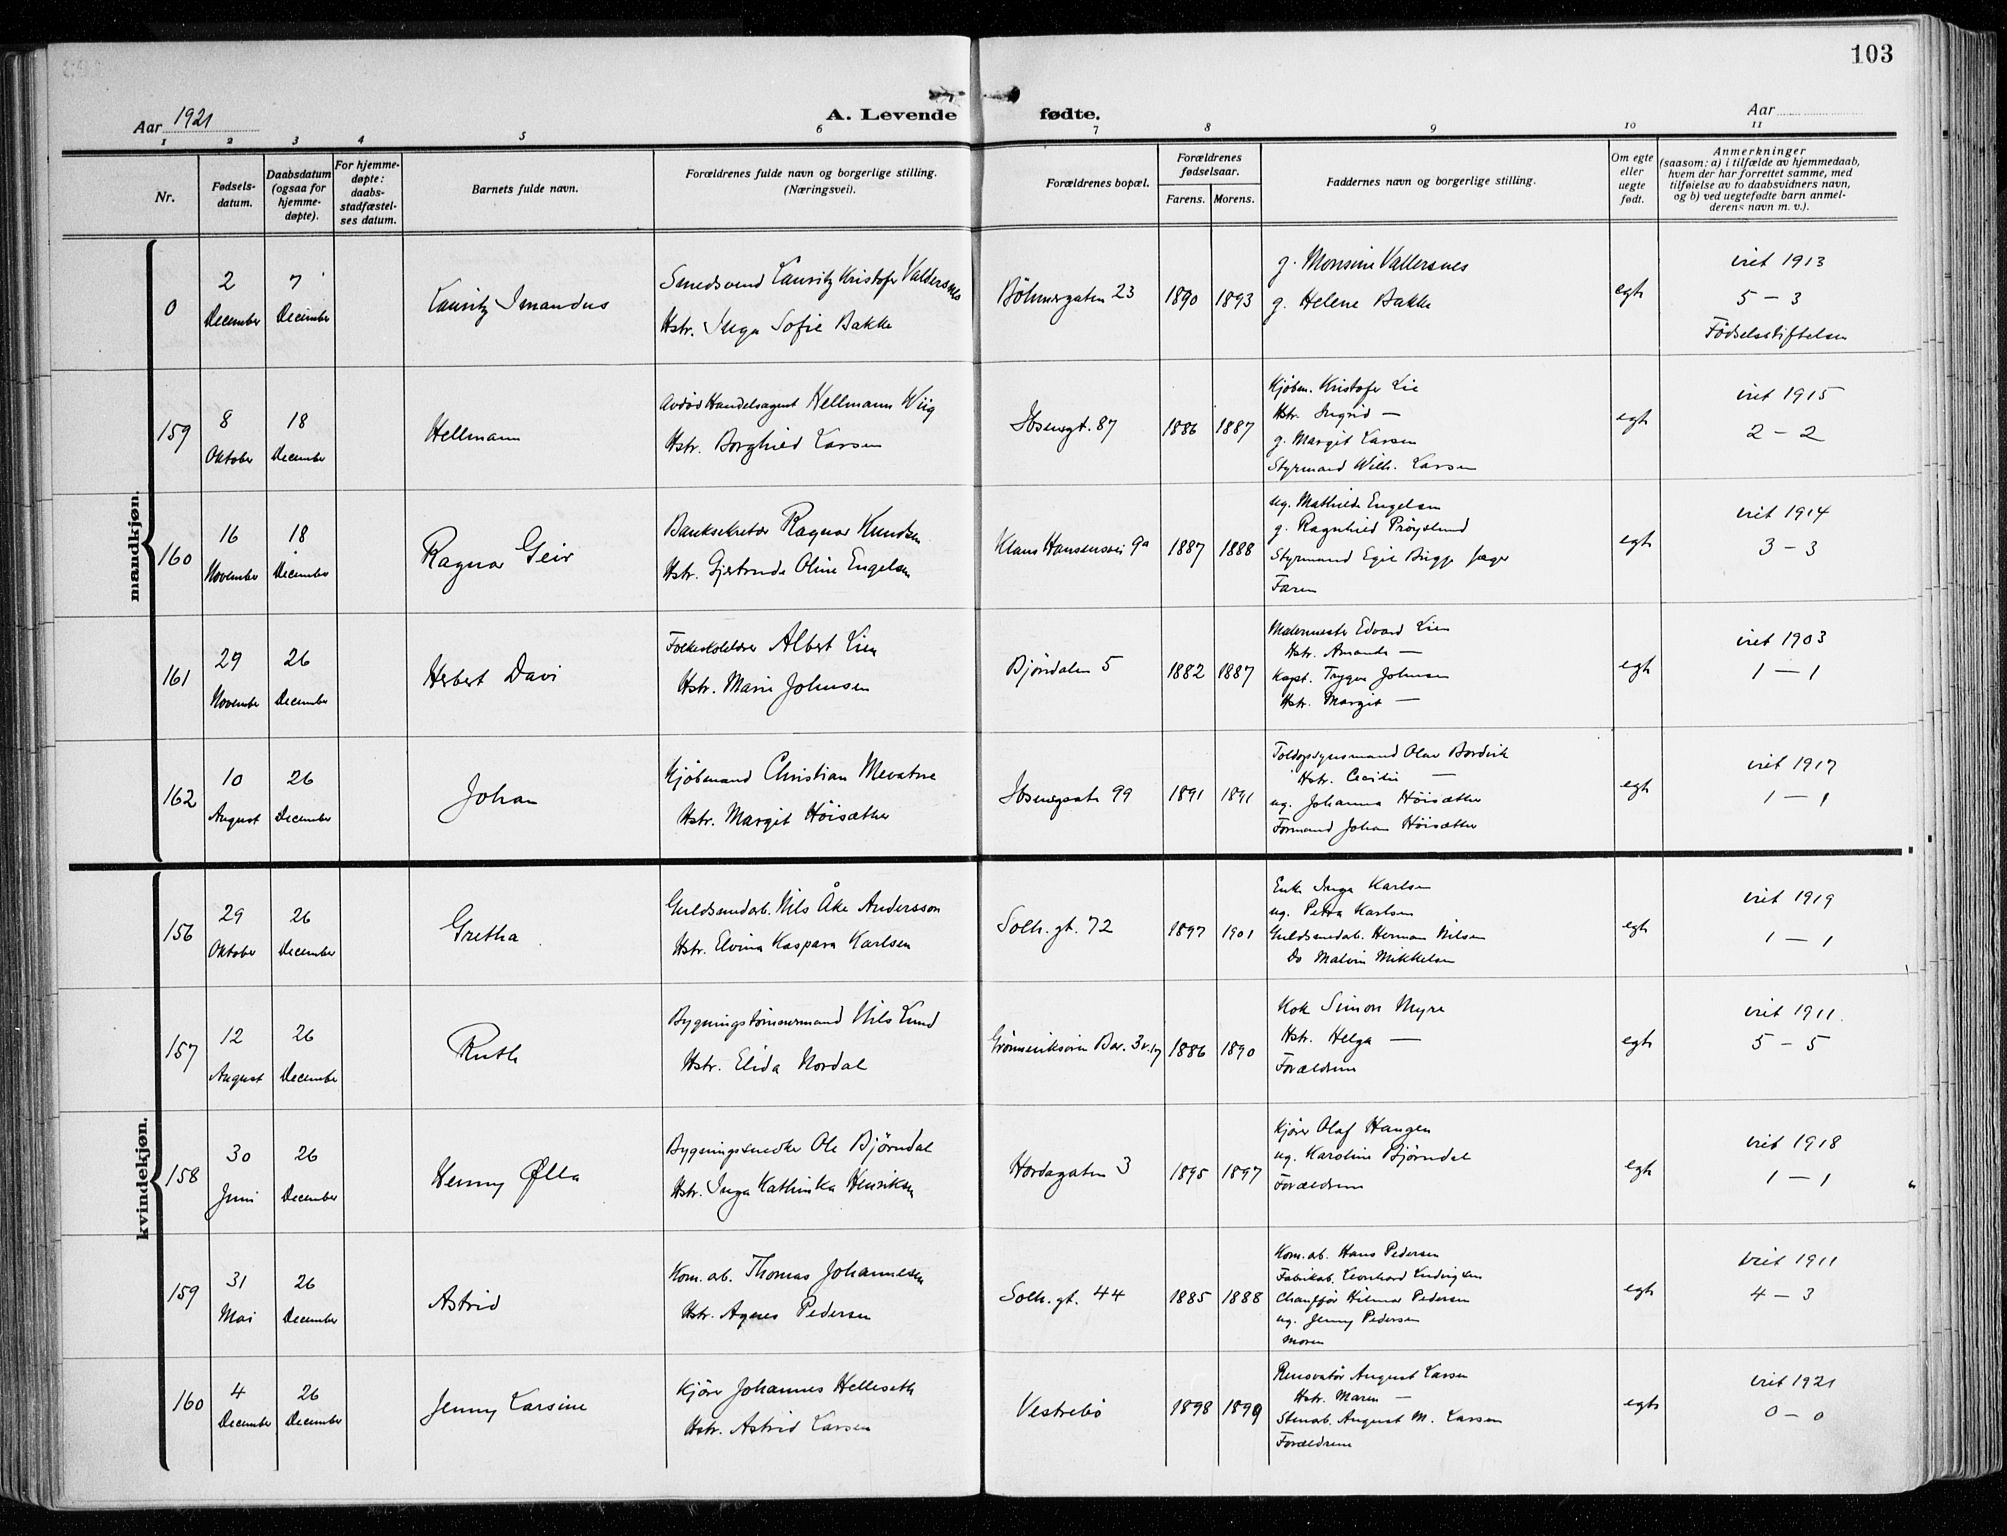 103
Aar 1921
A. Levende fødte.
Aar
1 2 3 4 5 6 7 8 9 10 11
Nr.
Fødsels-
datum.
Daabsdatum
(ogsaa for
hjemme-
døpte).
For hjemme-
døpte:
daabs-
stadfæstel-
ses datum.
Barnets fulde navn.
Forældrenes fulde navn og borgerlige stilling.
(Næringsvei).
Forældrenes bopæl.
Forældrenes
fødselsaar.
Farens. Morens.
Faddernes navn og borgerlige stilling.
Om egte
eller
uegte
født.
Anmerkninger
(saasom: a) i tilfælde av hjemmedaab,
hvem der har forrettet samme, med
tilføielse av to daabsvidners navn,
og b) ved uegtefødte barn anmel-
derens navn m. v.).
mandkjøn.
0
2
December
7
December
Lauritz Imandus
Smedsvend Lauritz Kristofer Valdersnes
Hstr. Inga Sofie Bakke
Böhmergaten 23
1890 1893
g. Monsine Vallersnes
g. Helene Bakke
egte
viet 1913
5 – 3
Fødselsstiftelsen
159
8
Oktober
18
December
Hellmann
Avdød Handelsagent Hellmann Wiig
Hstr. Borghild Larsen
Ibsensgt. 87
1886 1887
Kjøbm. Kristofer Lie
Hstr. Ingrid —
g. Margit Larsen
Styrmand Wilh. Larsen
egte
viet 1915
2 – 2
160
16
November
18
December
Ragnar Geir
Banksekretær Ragnar Knudsen
Hstr. Gjertrude Oline Engelsen
Klaus Hansensvei 9a
1887 1888
ug. Mathilde Engelsen
g. Ragnhild Frøyslund
Styrmand Egil Brigge Jæger
Faren
egte
viet 1914
3 – 3
161
29
November
26
December
Herbert Davi
Folkeskolelærer Albert Lien
Hstr. Marie Johnsen
Bjørndalen 5
1882 1887
Malermester Edvard Lien
Hstr. Amanda —
Kapt. Trygve Johnsen
Hstr. Margit —
egte
viet 1903
1 – 1
162
10
August
26
December
Johan
Kjøbmand Christian Mevatne
Hstr. Margit Höisæther
Ibsensgate 99
1891 1891
Toldopsynsmand Olav Bordvik
Hstr. Cecilie —
ug. Johanna Höisæther
Formand Johan Höisæther
egte
viet 1917
1 – 1
kvindekjøn.
156
29
Oktober
26
December
Gretha
Guldsmedarb. Nils Åke Andersson
Hstr. Elvina Kaspara Karlsen
Solh. gt. 72
1897 1901
Enke Inga Karlsen
ug. Petra Karlsen
Guldsmedab. Herman Nilsen
Do Malvin Mikkelsen
egte
viet 1919
1 – 1
157
12
August
26
December
Ruth
Bygningstømmermand Nils Lund
Hstr. Elida Nordal
1886 1890
Kok Simon Myre
Hstr. Helga —
Forældrene
egte
viet 1911.
5 – 5
158
30
Juni
26
December
Henny Ølla
Bygningssnedker Ole Bjørndal
Hstr. Inga Kathinka Henriksen
Hordagaten 3
1895 1897
Kjører Olaf Haugen
ug. Karoline Bjørndal
Forældrene
egte
viet 1918
1 – 1
159
31
Mai
26
December
Astrid
Kom. arb. Thomas Johannesen
Hstr. Agnes Pedersen
Solh. gt. 44
1885 1888
Kom. arb. Hans Pedersen
Fabrikab. Leonhard Ludvigsen
Chauffør Hilmar Pedersen
ug. Jenny Pedersen
Moren
egte
viet 1911
4 – 3
160
4
December
26
December
Jenny Larsine
Kjører Johannes Helleseth
Hstr. Astrid Larsen
Vestrebö
1898 1899
Renovatør August Larsen
Hstr. Maren —
Stenarb. August M. Larsen
Forældrene
egte
viet 1921
0 – 0